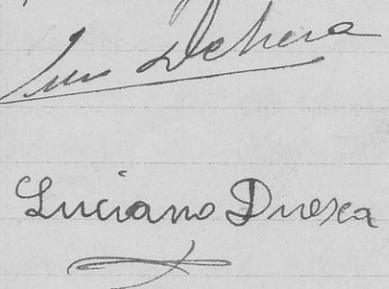 Luis Dehesa
Luciano Duesca